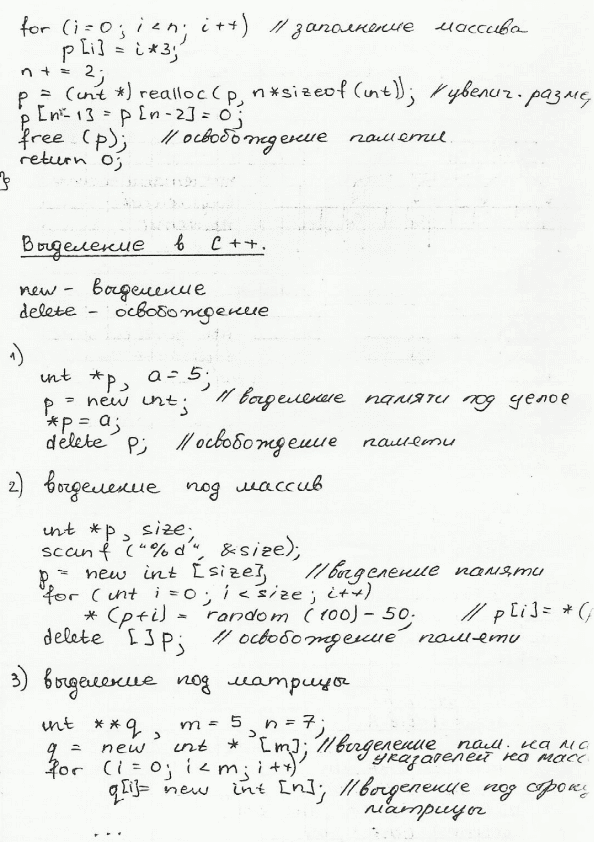 for (i=0; i<n; i++) // заполнение массива
p[i] = i*3;
n += 2;
p = (int *) realloc(p, n*sizeof(int)); // увелич. разме
p[n-1] = p[n-2] = 0;
free (p); // освобождение памети
return 0;
}
Выделение в C++.
new - выделение
delete - освобождение
1)
int *p, a = 5;
p = new int; // выделение памяти под целое
*p = a;
delete p; // освобождение памети
2) выделение под массив
int *p, size;
scanf ("%d", &size);
p = new int [size]; // выделение памяти
for (int i = 0; i < size; i++)
* (p+i) = random (100) - 50; // p[i] = *(p
delete [] p; // освобождение памети
3) выделение под матрицы
int **q, m = 5, n = 7;
q = new int * [m]; // выделение пам. на ма
указателей на масс
for (i = 0; i < m; i++)
q[i] = new int [n]; // выделение под строку
матрицы
...